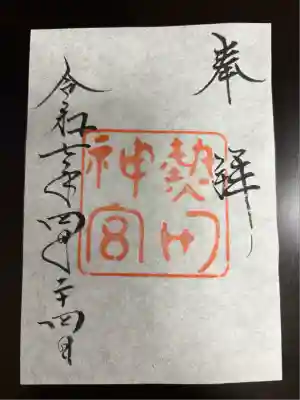 奉拝
熱田神宮
令和七年四月二十四日